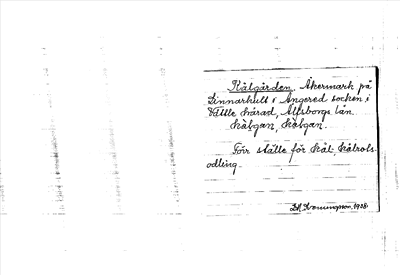 Kålgården. Åkermark på
Linnarhult i Angered socken i
Vättle härad, Älfsborgs län.
kå̱lgan, kå̱lgan.
Förr ställe för kål, kålrots-
odling.
1928